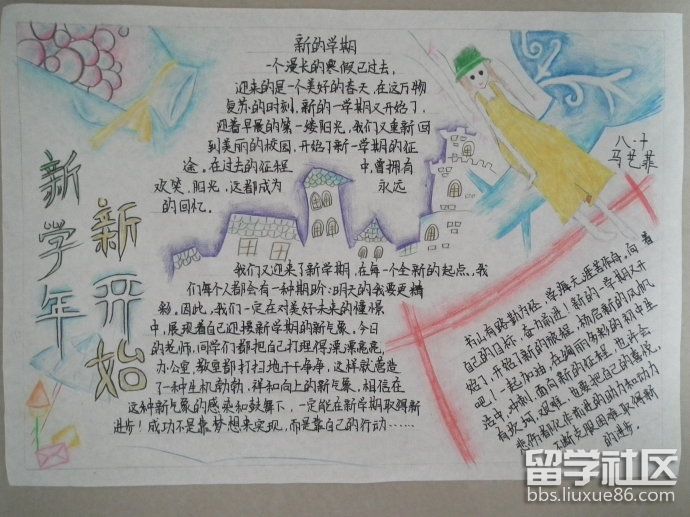 新学年
新开始
新的学期
一个漫长的寒假已过去,
迎来的是一个美好的春天,在这万物
复苏的时刻,新的一学期又开始了,
迎着早晨的第一缕阳光,我们又重新回
到美丽的校园,开始了新一学期的征
途。在过去的征程中,曾拥有
欢笑、阳光,这都成为永远
的回忆。
我们又迎来了新学期,在每一个全新的起点,我
们每个人都会有一种期盼:明天的我要更精
彩。因此,我们一定在对美好未来的憧憬
中,展现着自己迎接新学期的新气象。今日
的老师,同学们都把自己打理得漂漂亮亮,
办公室、教室都打扫地干干净净,这样就营造
了一种生机勃勃,祥和向上的新气象,相信在
这种新气象的感染和鼓舞下,一定能在新学期取得新
进步!成功不是靠梦想来实现,而是靠自己的行动……
八.十
马艺菲
书山有路勤为径,学海无涯苦作舟,向着
自己的目标,奋力前进!新的一学期又开
始了,开始了新的旅程,扬启新的风帆
吧!一起加油,在绚丽多彩的初中生
活中,冲刺,面向新的征程,也许会
有坎坷、艰难,也要把自己的喜悦,
悲伤都化作前进的动力和动力
不断克服困难,取得新
的进步。
留学社区
bbs.liuxue86.com